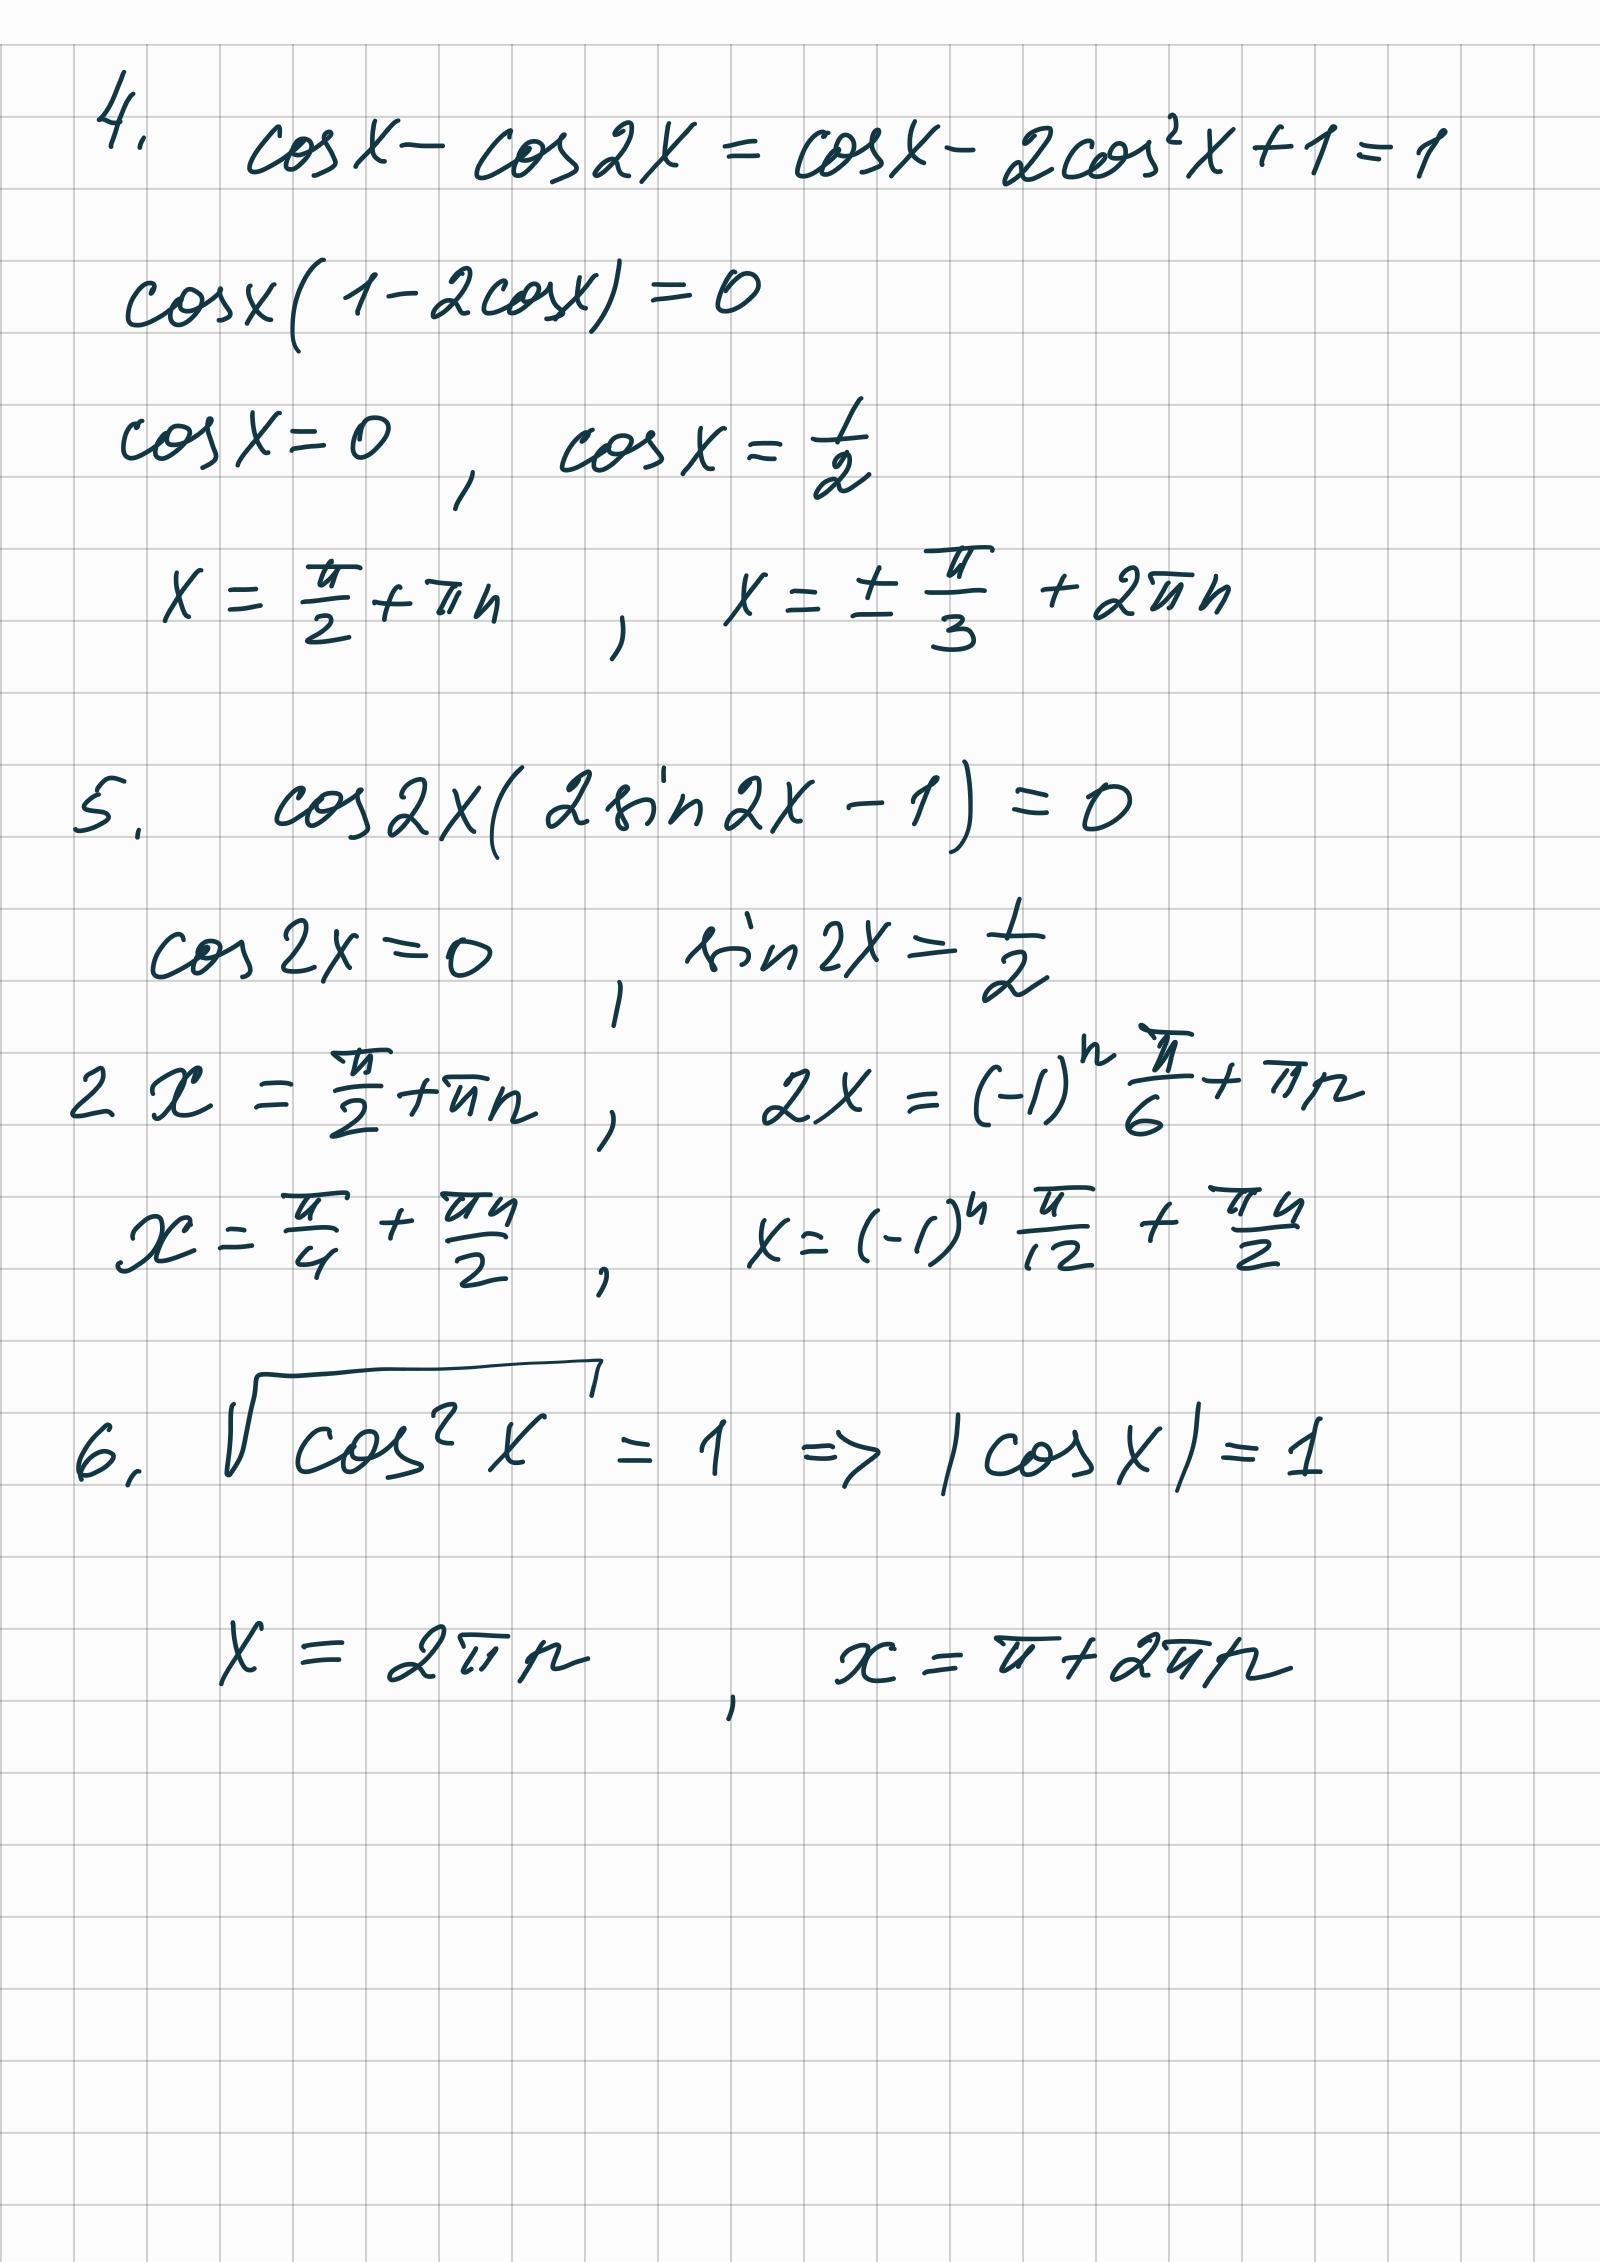 4. cosx - cos2x = cosx - 2cos²x + 1 = 1
cosx(1 - 2cosx) = 0
cosx = 0 , cosx = 1/2
x = π/2 + πn , x = ± π/3 + 2πn
5. cos2x(2sin2x - 1) = 0
cos2x = 0 , sin2x = 1/2
2x = π/2 + πn , 2x = (-1)ⁿ π/6 + πn
x = π/4 + πn/2 , x = (-1)ⁿ π/12 + πn/2
6. √(cos²x) = 1 => |cosx| = 1
x = 2πn , x = π + 2πn